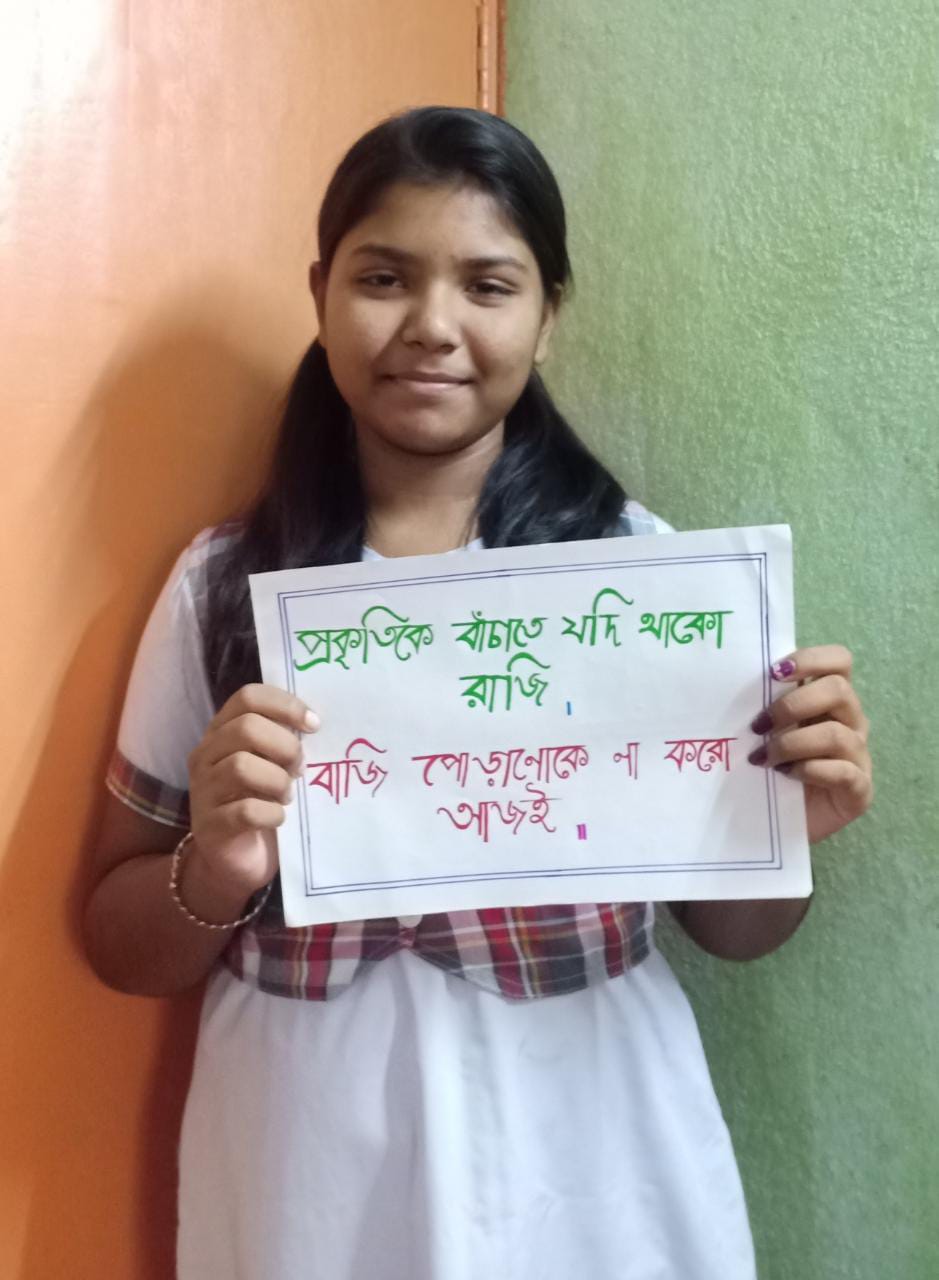 প্রকৃতিকে বাঁচাতে যদি থাকো
রাজি ।
বাজি পোড়ানোকে না করো
আজই ॥